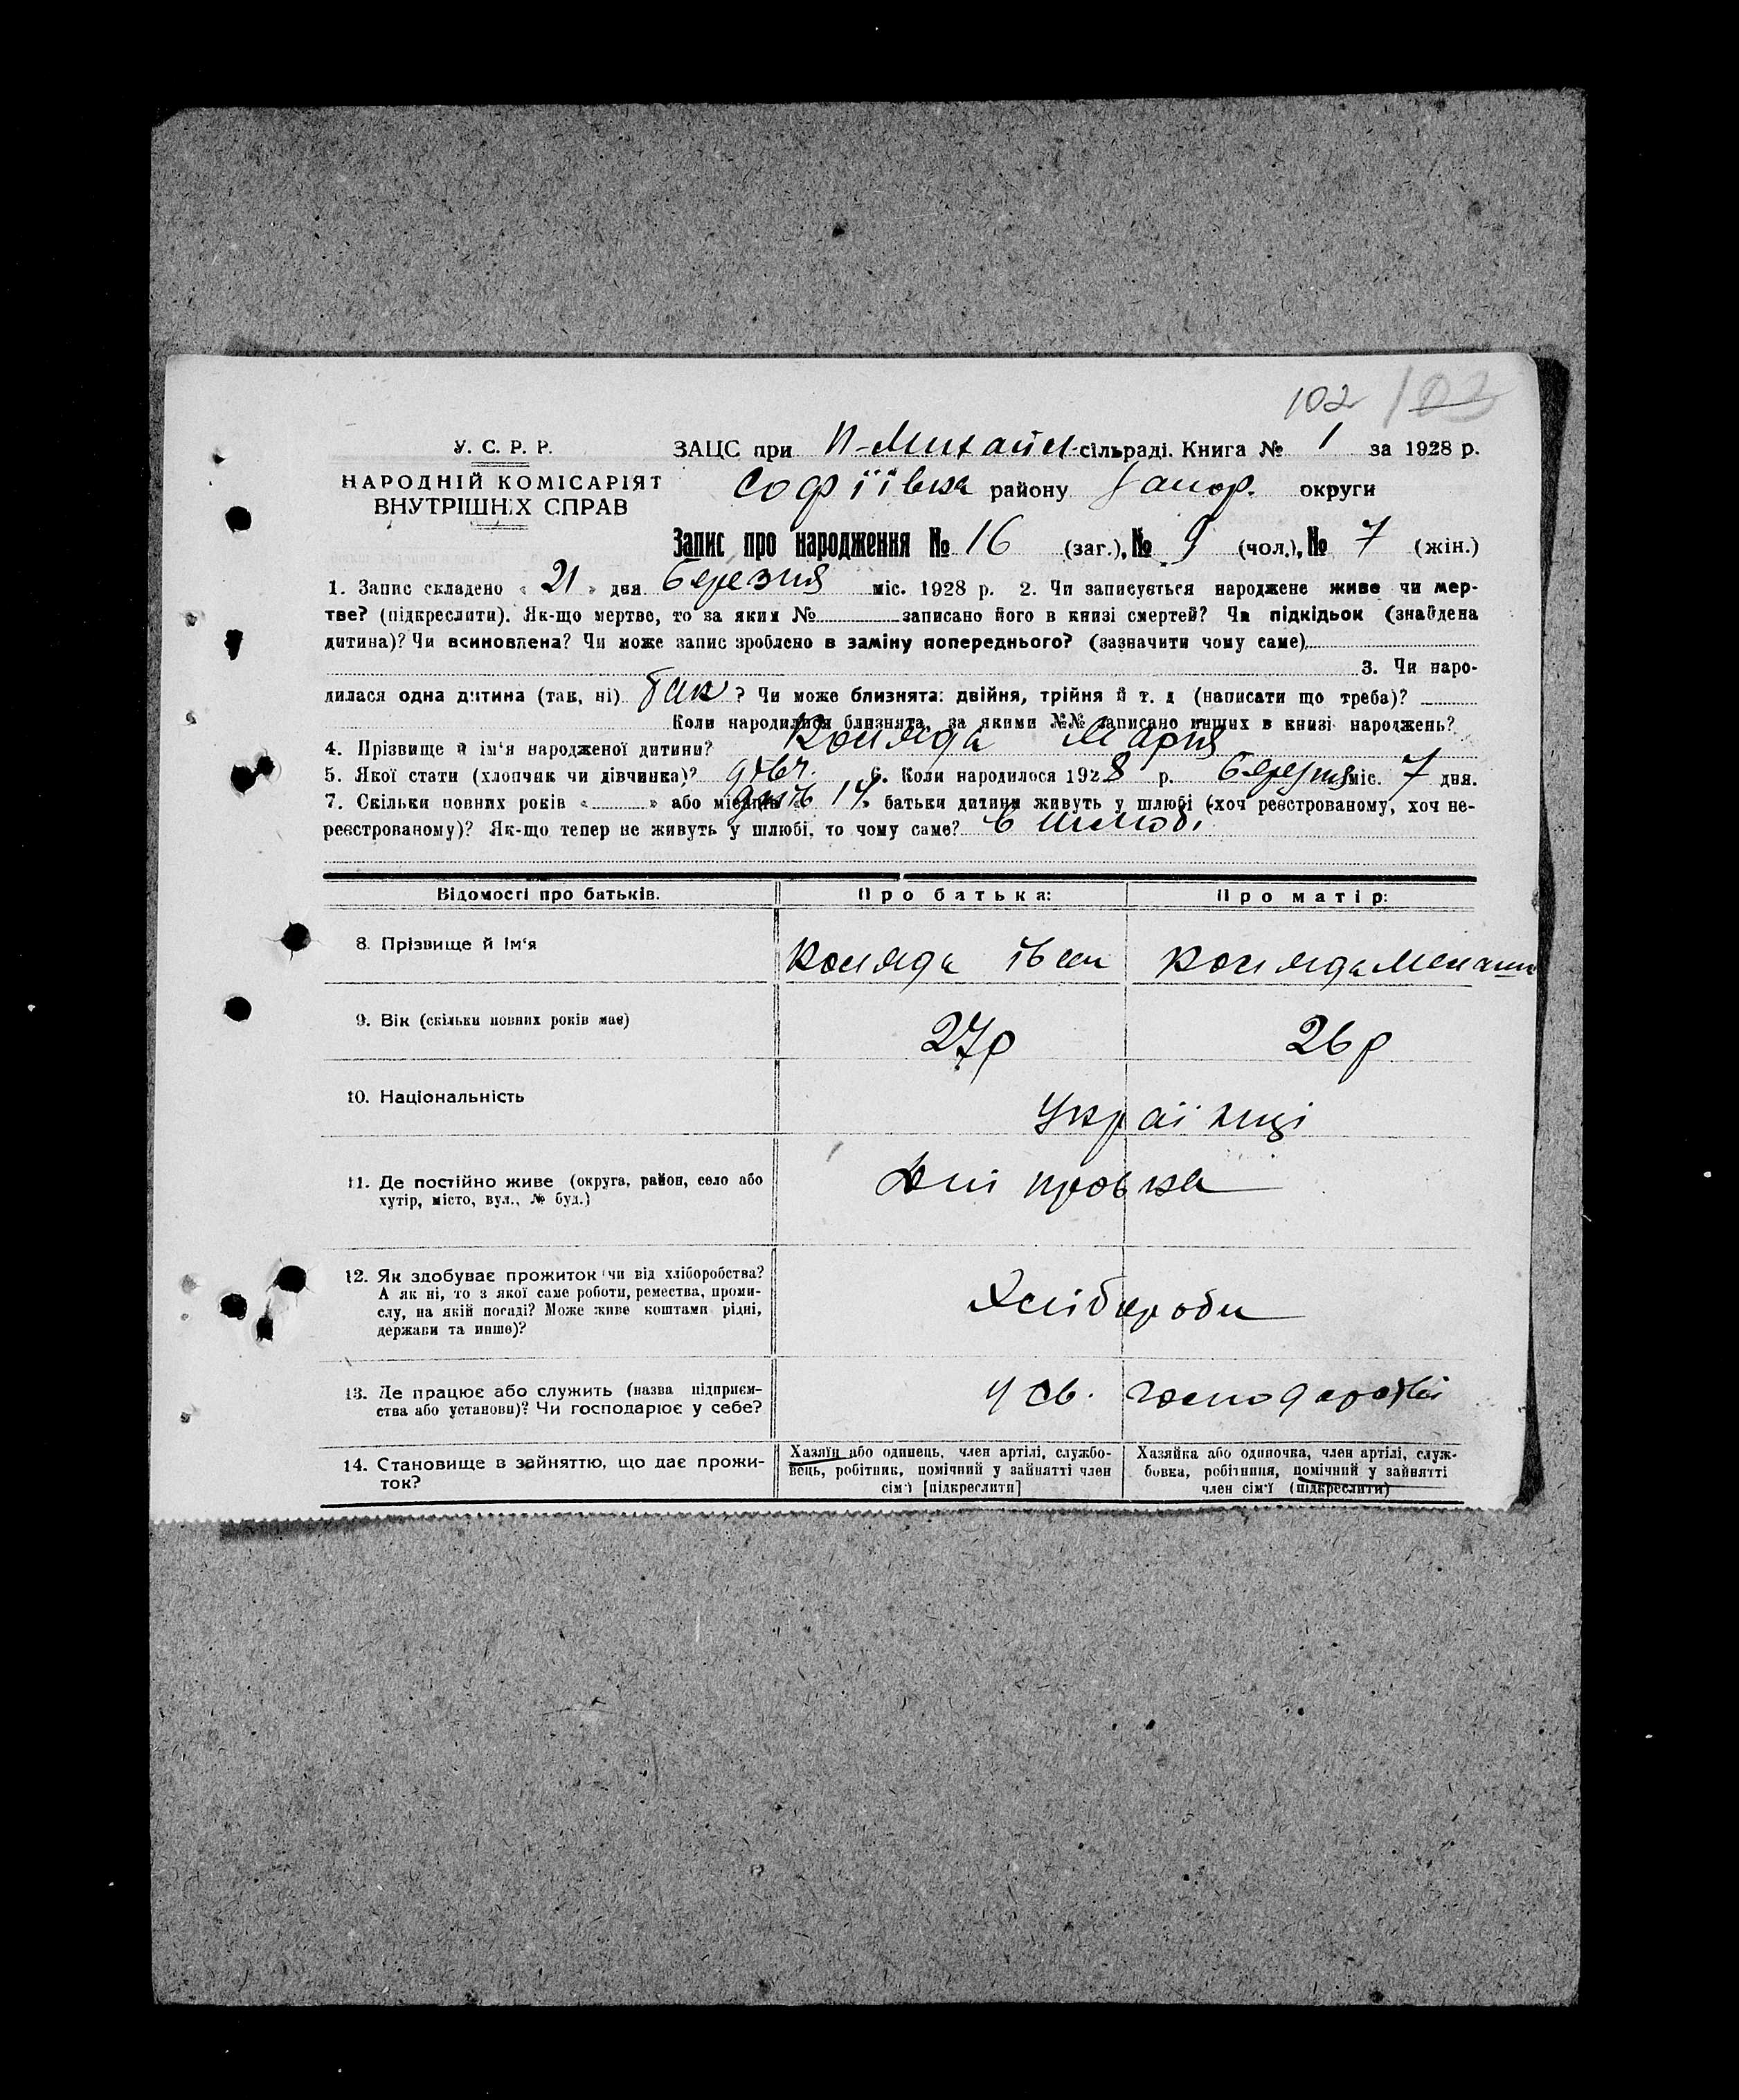 102 103
У. С. Р. Р.
НАРОДНІЙ КОМІСАРІЯТ
ВНУТРІШНІХ СПРАВ
ЗАЦС при Н-Михайл. сільраді. Книга № 1 за 1928 р.
Софіївка району Запор. округи
Запис про народження № 16 (заг.), № 9 (чол.), № 7 (жін.)
1. Запис складено « 21 » дня березня міс. 1928 р. 2. Чи записується народжене живе чи мер-
тве? (підкреслити). Як-що мертве, то за яким № записано його в книзі смертей? Чи підкідьок (знайдена
дитина)? Чи всиновлена? Чи може запис зроблено в заміну попереднього? (зазначити чому саме)
3. Чи наро-
дилася одна дитина (так, ні) так ? Чи може близнята: двійня, трійня й т. д (написати що треба)?
Коли народилися близнята, за якими №№ записано инших в книзі народжень?
4. Прізвище й ім'я народженої дитини? Коляда Мария
5. Якої стати (хлопчик чи дівчинка)? дівч. 6. Коли народилося 1928 р. березня міс. 7 дня.
7. Скільки повних років « » або місяців 14 » батьки дитини живуть у шлюбі (хоч реєстрованому, хоч не-
реєстрованому)? Як-що тепер не живуть у шлюбі, то чому саме? в шлюбі
Відомості про батьків. Про батька: Про матір:
8. Прізвище й ім'я Коляда Іван Коляда Мелашк
9. Вік (скільки повних років має) 27р 26р
10. Національність Українці
11. Де постійно живе (округа, район, село або
хутір, місто, вул., № буд.) Дніпровка
12. Як здобуває прожиток (чи від хліборобства?
А як ні, то з якої саме роботи, ремества, проми-
слу, на якій посаді? Може живе коштами рідні,
держави та инше)? Хлібороби
13. Де працює або служить (назва підприєм-
ства або установи)? Чи господарює у себе? у св. господарстві
14. Становище в зайняттю, що дає прожи-
ток?
Хазяїн або одинець, член артілі, службо-
вець, робітник, помічний у зайнятті член
сім'ї [підкреслити]
Хазяйка або одиночка, член артілі, служ-
бовка, робітниця, помічний у зайнятті
член сім'ї (підкреслити)